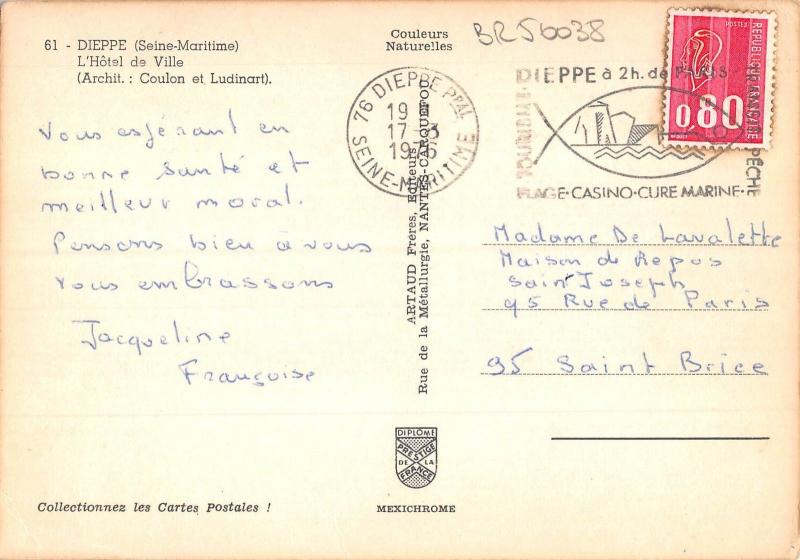 61 - DIEPPE (Seine-Maritime)
L'Hôtel de Ville
(Archit. : Coulon et Ludinart).
Couleurs
Naturelles
BR56038
76 DIEPPE PPAL
19 H
17 - 3
1976
SEINE-MARITIME
DIEPPE à 2h. de PARIS
PÊCHE
PLAGE·CASINO·CURE MARINE·
POSTES
REPUBLIQUE FRANÇAISE
0,80
Vous espérant en
bonne santé et
meilleur moral.
Pensons bien à vous
Vous embrassons
Jacqueline
Françoise
ARTAUD Frères, Editeurs
Rue de la Métallurgie, NANTES-CARQUEFOU
Madame De Lavalette
Maison de Repos
Saint Joseph
95 Rue de Paris
95 Saint Brice
DIPLÔME
PRESTIGE
DE LA
FRANCE
Collectionnez les Cartes Postales !
MEXICHROME